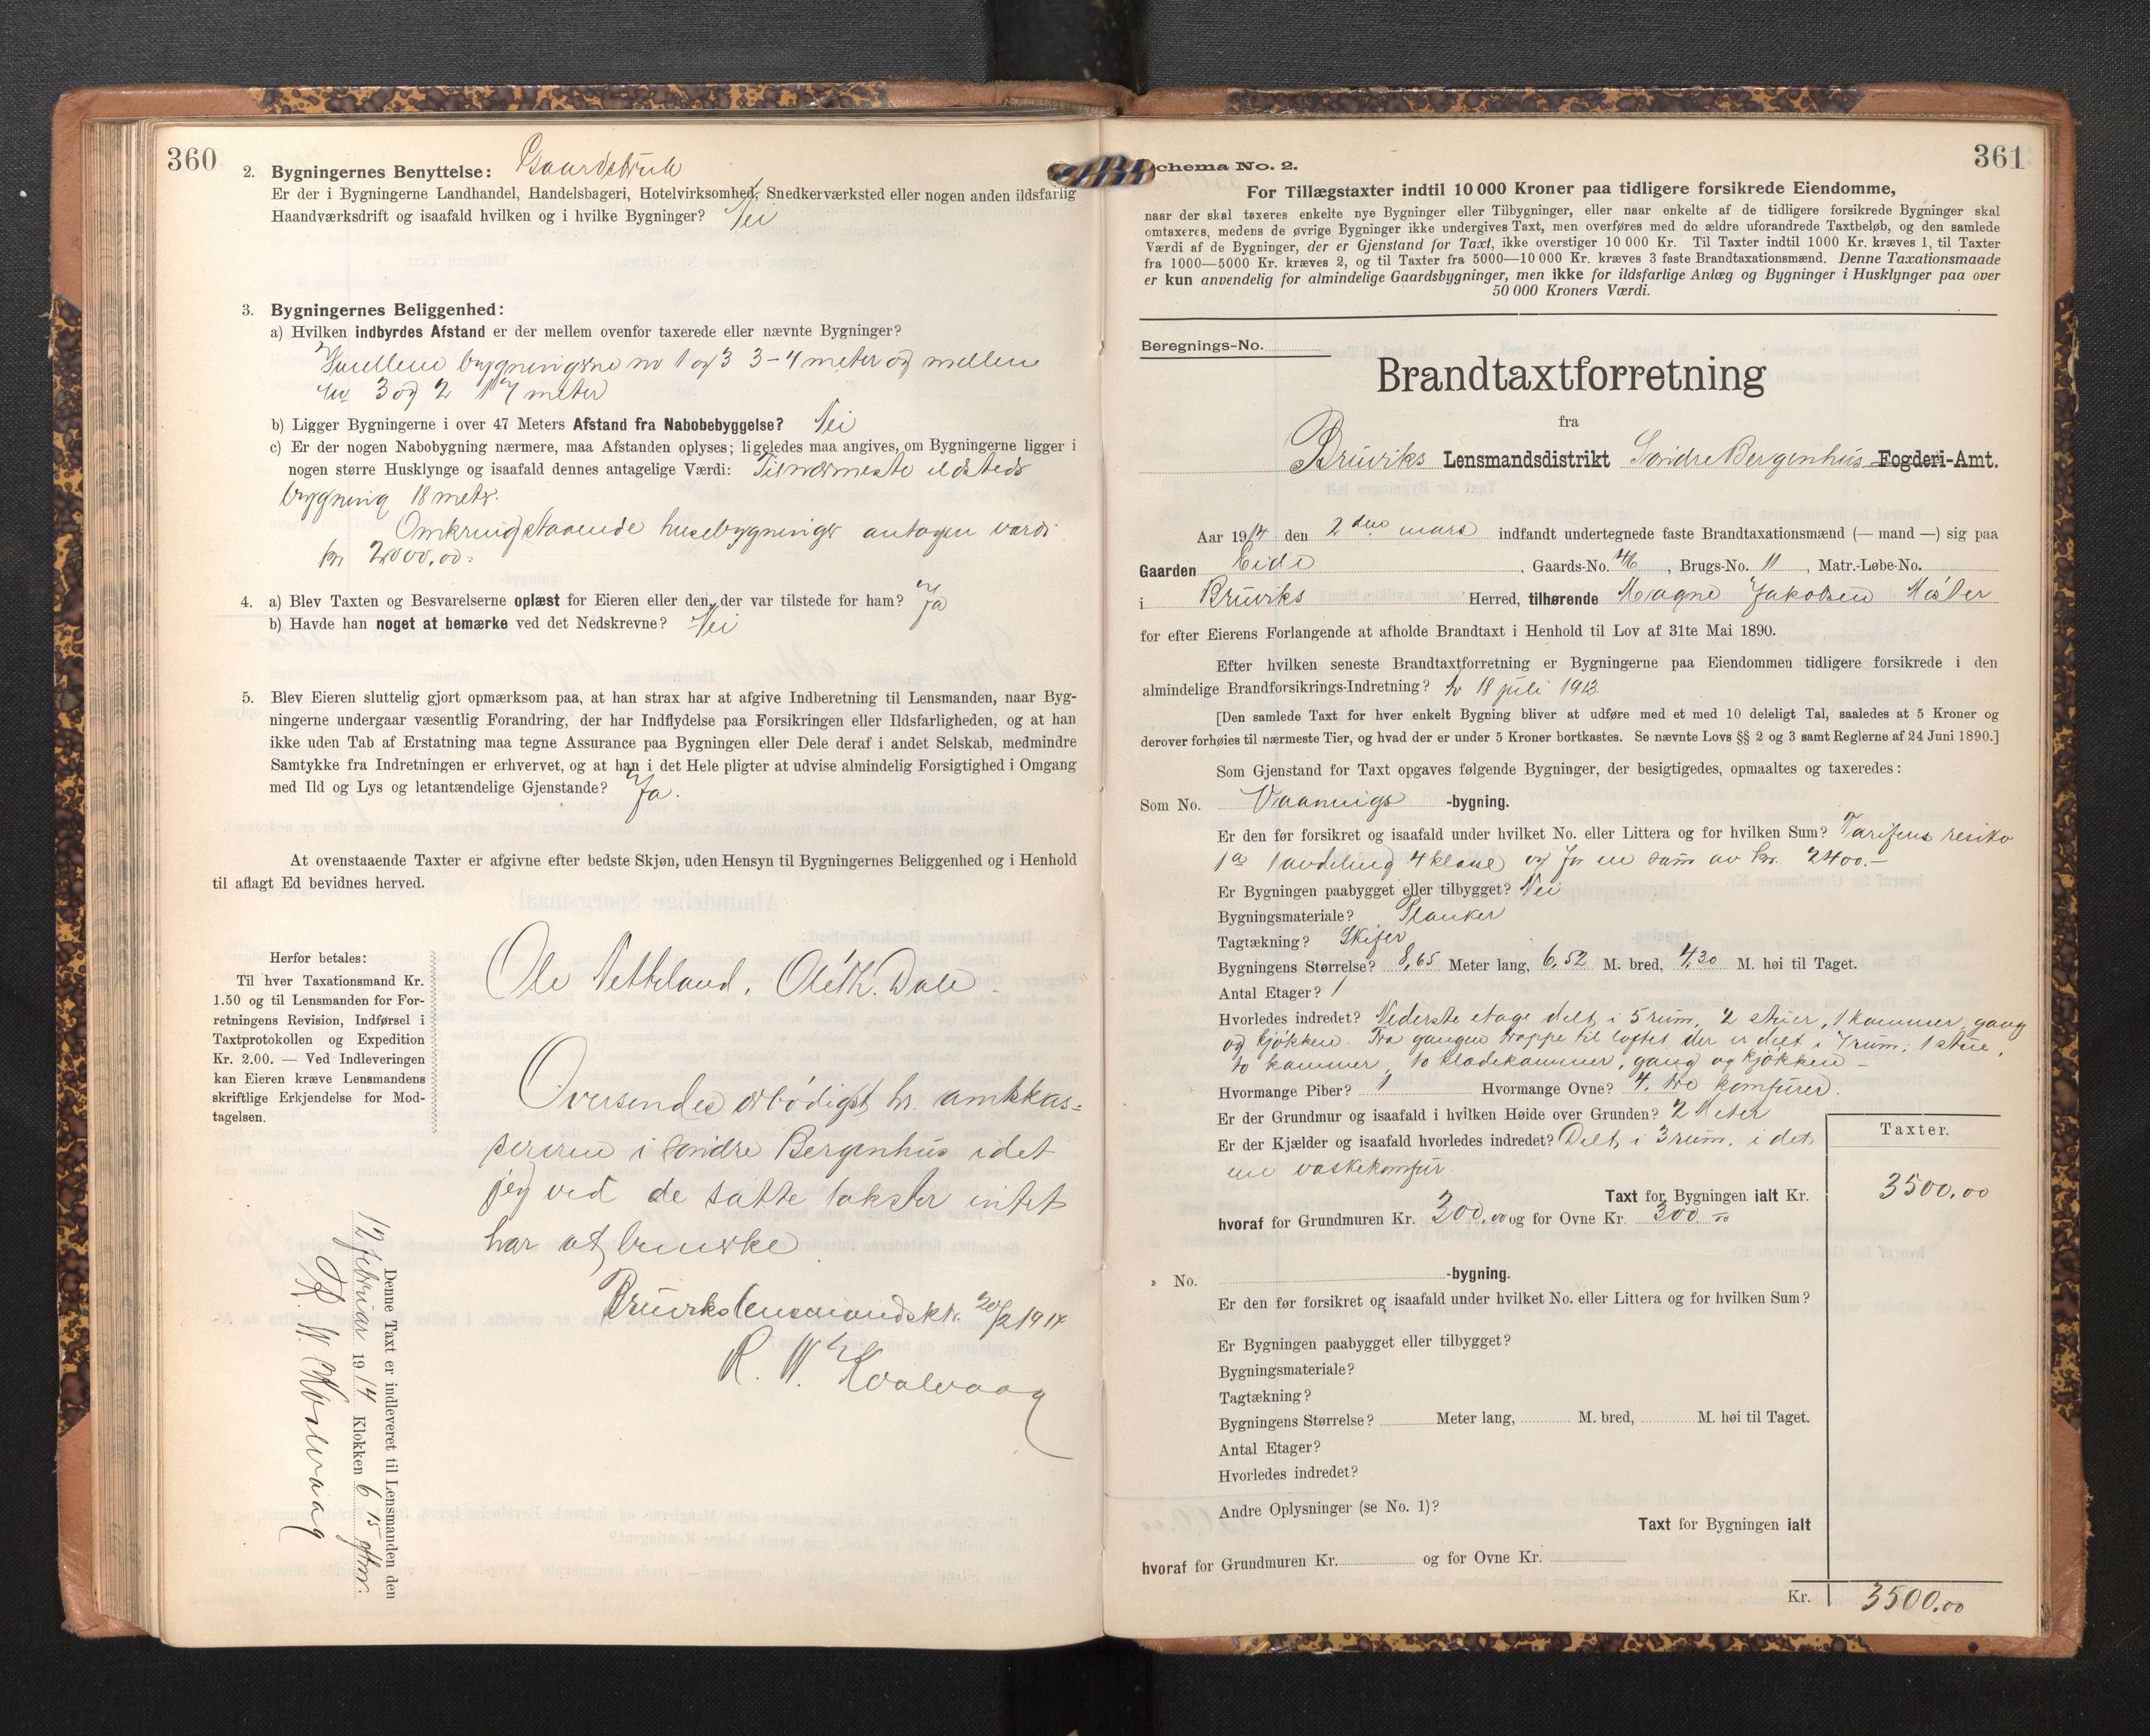 360
2. Bygningernes Benyttelse: Gaardsbruk
Er der i Bygningerne Landhandel, Handelsbageri, Hotelvirksomhed, Snedkerværksted eller nogen anden ildsfarlig
Haandværksdrift og isaafald hvilken og i hvilke Bygninger? Nei
3. Bygningernes Beliggenhed:
a) Hvilken indbyrdes Afstand er der mellem ovenfor taxerede eller nævnte Bygninger?
Imellem bygningerne no 1 og 3 3-4 meter og mellem
no 3 og 2 17 meter
b) Ligger Bygningerne i over 47 Meters Afstand fra Nabobebyggelse? Nei
c) Er der nogen Nabobygning nærmere, maa Afstanden oplyses; ligeledes maa angives, om Bygningerne ligger i
nogen større Husklynge og isaafald dennes antagelige Værdi: Til nærmeste ildsteds
bygning 18 meter.
Omkringstaaende husebygninger antagen værdi
kr 2000,00.
4. a) Blev Taxten og Besvarelserne oplæst for Eieren eller den, der var tilstede for ham? Ja
b) Havde han noget at bemærke ved det Nedskrevne? Nei
5. Blev Eieren sluttelig gjort opmærksom paa, at han strax har at afgive Indberetning til Lensmanden, naar Byg-
ningerne undergaar væsentlig Forandring, der har Indflydelse paa Forsikringen eller Ildsfarligheden, og at han
ikke uden Tab af Erstatning maa tegne Assurance paa Bygningen eller Dele deraf i andet Selskab, medmindre
Samtykke fra Indretningen er erhvervet, og at han i det Hele pligter at udvise almindelig Forsigtighed i Omgang
med Ild og Lys og letantændelige Gjenstande? Ja.
At ovenstaaende Taxter er afgivne efter bedste Skjøn, uden Hensyn til Bygningernes Beliggenhed og i Henhold
til aflagt Ed bevidnes herved.
Herfor betales:
Til hver Taxationsmand Kr.
1.50 og til Lensmanden for For-
retningens Revision, Indførsel i
Taxtprotokollen og Expedition
Kr. 2.00. — Ved Indleveringen
kan Eieren kræve Lensmandens
skriftlige Erkjendelse for Mod-
tagelsen.
Ole Netteland. Ole K. Dale
Oversendes ærbødigst hr. amtskas-
sereren i søndre Bergenhus idet
jeg ved de satte takster intet
har at bemerke
Bruviks lensmandsktr. 20/2 1914
R. W. Kvalvaag
Denne Taxt er indleveret til Lensmanden den
12 februar 1914 Klokken 6 15 eftm.
R. W. Kvalvaag
361
Schema No. 2.
For Tillægstaxter indtil 10 000 Kroner paa tidligere forsikrede Eiendomme,
naar der skal taxeres enkelte nye Bygninger eller Tilbygninger, eller naar enkelte af de tidligere forsikrede Bygninger skal
omtaxeres, medens de øvrige Bygninger ikke undergives Taxt, men overføres med de ældre uforandrede Taxtbeløb, og den samlede
Værdi af de Bygninger, der er Gjenstand for Taxt, ikke overstiger 10 000 Kr. Til Taxter indtil 1000 Kr. kræves 1, til Taxter
fra 1000—5000 Kr. kræves 2, og til Taxter fra 5000—10 000 Kr. kræves 3 faste Brandtaxationsmænd. Denne Taxationsmaade
er kun anvendelig for almindelige Gaardsbygninger, men ikke for ildsfarlige Anlæg og Bygninger i Husklynger paa over
50 000 Kroners Værdi.
Beregnings-No.
Brandtaxtforretning
fra
Bruviks Lensmandsdistrikt Søndre Bergenhus Fogderi-Amt.
Aar 1914 den 2den mars indfandt undertegnede faste Brandtaxationsmænd (— mand —) sig paa
Gaarden Eide, Gaards-No. 46, Brugs-No. 11, Matr.-Løbe-No.
i Bruviks Herred, tilhørende Magne Jakobsen Møster
for efter Eierens Forlangende at afholde Brandtaxt i Henhold til Lov af 31te Mai 1890.
Efter hvilken seneste Brandtaxtforretning er Bygningerne paa Eiendommen tidligere forsikrede i den
almindelige Brandforsikrings-Indretning? Av 18 juli 1913
[Den samlede Taxt for hver enkelt Bygning bliver at udføre med et med 10 deleligt Tal, saaledes at 5 Kroner og
derover forhøies til nærmeste Tier, og hvad der er under 5 Kroner bortkastes. Se nævnte Lovs §§ 2 og 3 samt Reglerne af 24 Juni 1890.]
Som Gjenstand for Taxt opgaves følgende Bygninger, der besigtigedes, opmaaltes og taxeredes:
Som No. Vaanings-bygning.
Er den før forsikret og isaafald under hvilket No. eller Littera og for hvilken Sum? Tarifens resiko
1a 1 avdeling 4 klasse og for en sum av kr. 2400.—
Er Bygningen paabygget eller tilbygget? Nei
Bygningsmateriale? Planker
Tagtækning? Skifer
Bygningens Størrelse? 8,65 Meter lang, 6,52 M. bred, 4,30 M. høi til Taget.
Antal Etager? 1
Hvorledes indredet? Nederste etage delt i 5 rum, 2 stuer, 1 kammer, gang
og kjøkken. Fra gangen trappe til loftet der er delt i 7 rum, 1 stue,
to kammer, to klædekammer, gang og kjøkken -
Hvormange Piber? 1 Hvormange Ovne? 4, tre komfurer.
Er der Grundmur og isaafald i hvilken Høide over Grunden? 2 Meter
Er der Kjælder og isaafald hvorledes indredet? Delt i 3 rum, i det
ene vaskekomfur.
Taxter.
Taxt for Bygningen ialt Kr. 3500,00
hvoraf for Grundmuren Kr. 300,00 og for Ovne Kr. 300.00
» No. -bygning.
Er den før forsikret og isaafald under hvilket No. eller Littera og for hvilken Sum?
Er Bygningen paabygget eller tilbygget?
Bygningsmateriale?
Tagtækning?
Bygningens Størrelse? Meter lang, M. bred, M. høi til Taget.
Antal Etager?
Hvorledes indredet?
Andre Oplysninger (se No. 1)?
Taxt for Bygningen ialt
hvoraf for Grundmuren Kr. og for Ovne Kr.
Kr. 3500,00